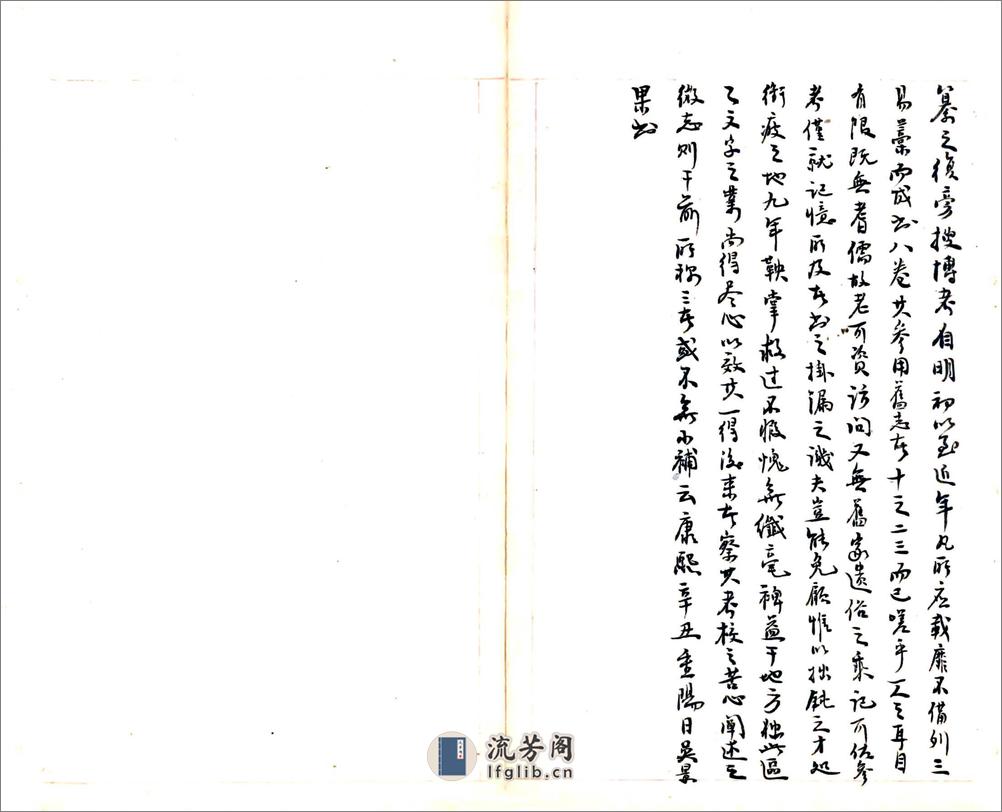 纂之後旁搜博考自明初以至近年凡所应載靡不備列三
易藁而成书八卷其參用舊志者十之二三而已嗟乎一人之耳目
有限既無耆儒故老可資訪問又無舊家遺俗之乘記可佐參
考僅就記憶所及者书之掛漏之譏夫豈能免顧惟以拙鈍之才处
衝疲之地九年鞅掌救过不暇愧無纖毫裨益于地方独此區
々文字之業尚得尽心以效其一得後来者察其考校之苦心闡述之
微志则于前所称三者或不無小補云康熙辛丑重陽日吳景
果书
流芳阁
lfglib.cn